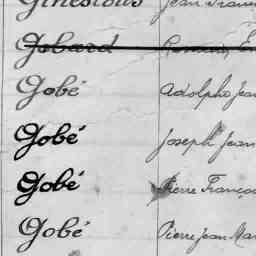 Ginestous Jean Franç
Gobard
Gobé Adolphe Jean
Gobé Joseph Jean
Gobé Pierre Françoi
Gobé Pierre Jean Mar